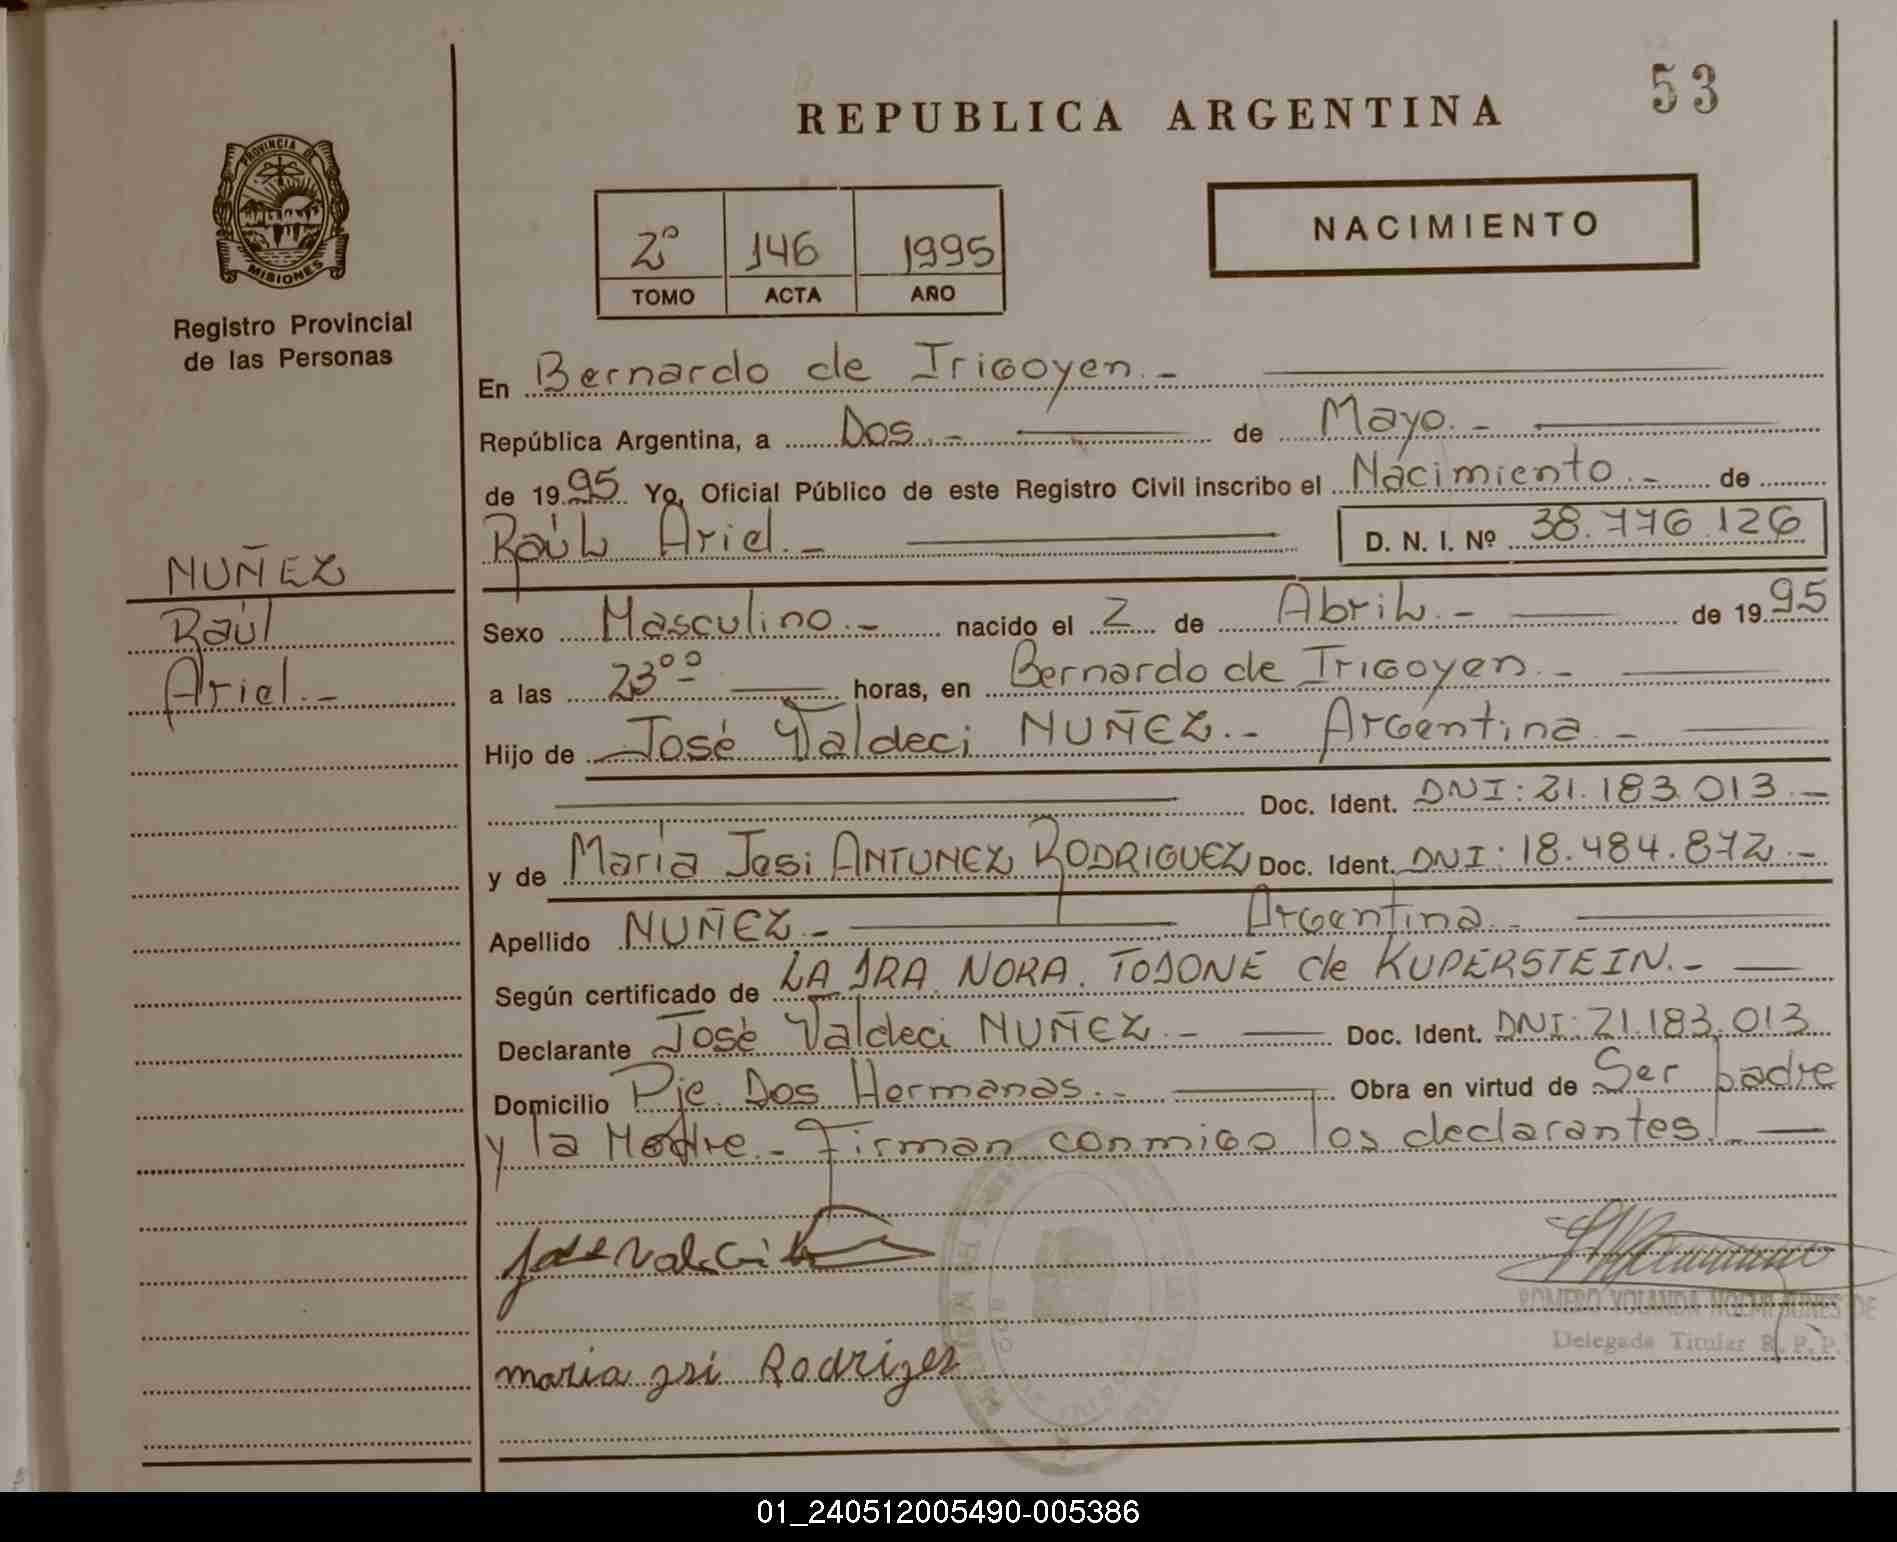 53
REPUBLICA ARGENTINA
PROVINCIA DE
MISIONES
Registro Provincial
de las Personas
2º 146 1995
TOMO ACTA AÑO
NACIMIENTO
NUÑEZ
Raúl
Ariel.-
En Bernardo de Irigoyen.-
República Argentina, a Dos.- de Mayo.-
de 1995 Yo, Oficial Público de este Registro Civil inscribo el Nacimiento.- de
Raúl Ariel.- D. N. I. Nº 38.776.126
Sexo Masculino.- nacido el 2 de Abril.- de 1995
a las 23ºº horas, en Bernardo de Irigoyen.-
Hijo de José Valdeci NUÑEZ.- Argentina.-
Doc. Ident. DNI: 21.183.013.-
y de María Jesi ANTUNEZ RODRIGUEZ Doc. Ident. DNI: 18.484.872.-
Apellido NUÑEZ.- Argentina.-
Según certificado de LA DRA. NORA. TODONE de KUPERSTEIN.-
Declarante José Valdeci NUÑEZ.- Doc. Ident. DNI: 21.183.013
Domicilio Pje. Dos Hermanas.- Obra en virtud de Ser padre
y la Madre.- Firman conmigo los declarantes.-
maria jsi Rodrigez
ROMERO YOLANDA NOEMI DE
Delegada Titular R.P.P.
01_240512005490-005386